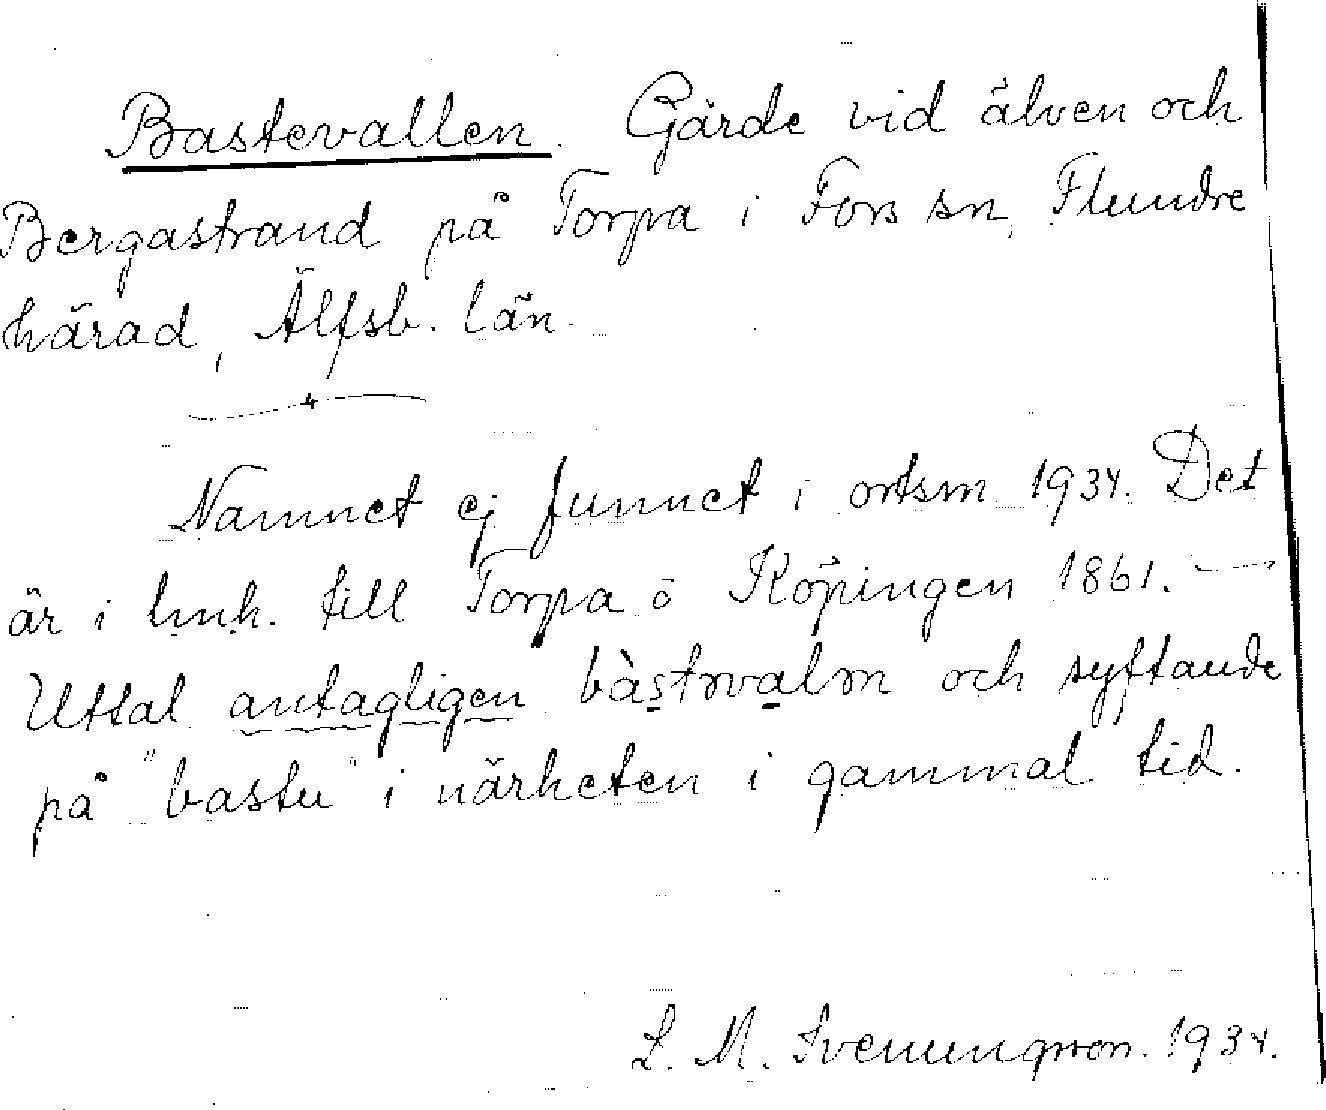 Bastevallen. Gärde vid älven och
Bergastrand på Torpa i Fors sn, Flundre
härad, Älfsb. län.
Namnet ej funnet i ortsm 1934. Det
är i lmh. till Torpa ö Köpingen 1861. —
Uttal antagligen bàstǝvalǝn och syftande
på "bastu" i närheten i gammal tid.
L. M. Svenungsson. 1934.